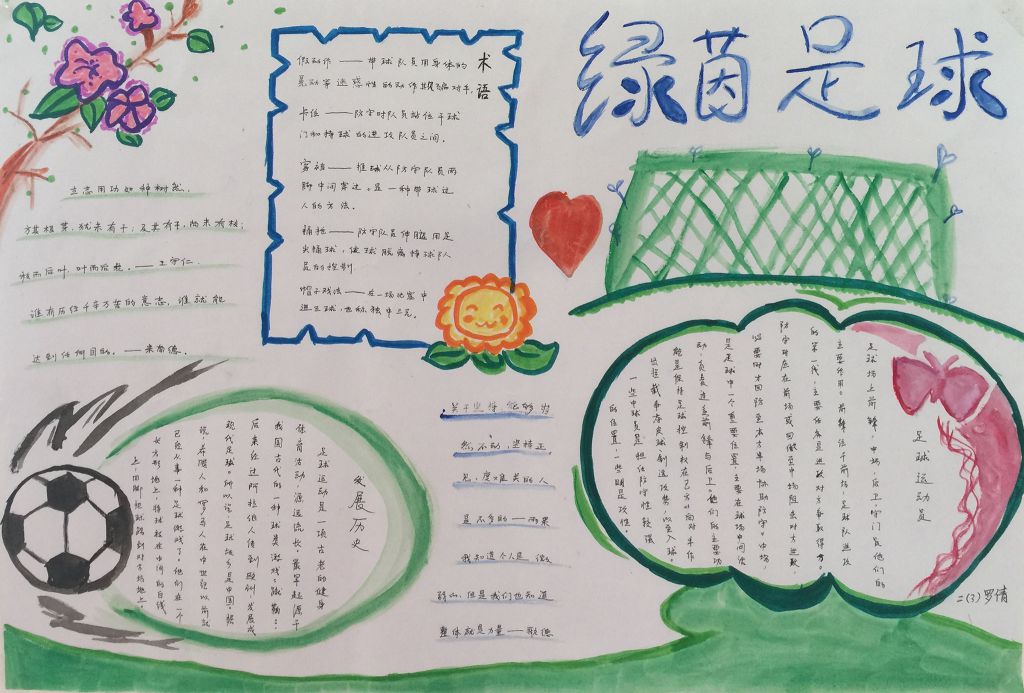 绿茵足球
术语
假动作——带球队员用身体的
晃动等迷惑性的动作其骗对手。
卡位——防守时队员站位于球
门和持球的进攻队员之间。
穿裆——推球从防守队员两
脚中间穿过。是一种带球过
人的方法。
铺抢——防守队员伸腿用足
尖捅球，使球脱离持球队
员的控制。
帽子戏法——在一场比赛中
进三球，也称独中三元。
立志用功如种树然，
方其根芽，犹未有干；及其有干，尚未有枝；
枝而后叶，叶而后花。——王守仁
谁有历经千辛万苦的意志，谁就能
达到任何目的。——米南德
发展历史
足球运动是一项古老的健身
体育活动，源远流长。最早起源于
我国古代的一种球类游戏“蹴鞠”。
后来经过阿拉伯人传到欧洲，发展成
现代足球。所以说，足球故乡是中国。据
说，希腊人和罗马人在中世纪以前就
已经从事一种足球游戏了。他们在一个
长方形场上，将球放在中间的白线
上，用脚把球踢到对方场地上。
关于坚持能够为
然不动，坚持正
见，度难关的人
是不多的——雨果
我知道个人是微
弱的，但是我们也知道
整体就是力量——歌德
足球运动员
足球场上前锋，中场，后卫守门员他们的
主要作用。前锋位于前场，是球队进攻
的第一线，主要任务是进攻对方争取得分。
防守时应在前场或回撤至中场阻击对方进攻，
必要时才回防至本方半场协助防守。中场，
是足球中一个重要位置，主要在球场中间活
动，负责连系前锋与后卫。他们的主要功
能是保持足球控制权在己方向对半作
出拦截和夹球制造攻势，以至入球。
一些中球员是担任防守性较强
的位置，一些则是攻性。
二(3)罗倩